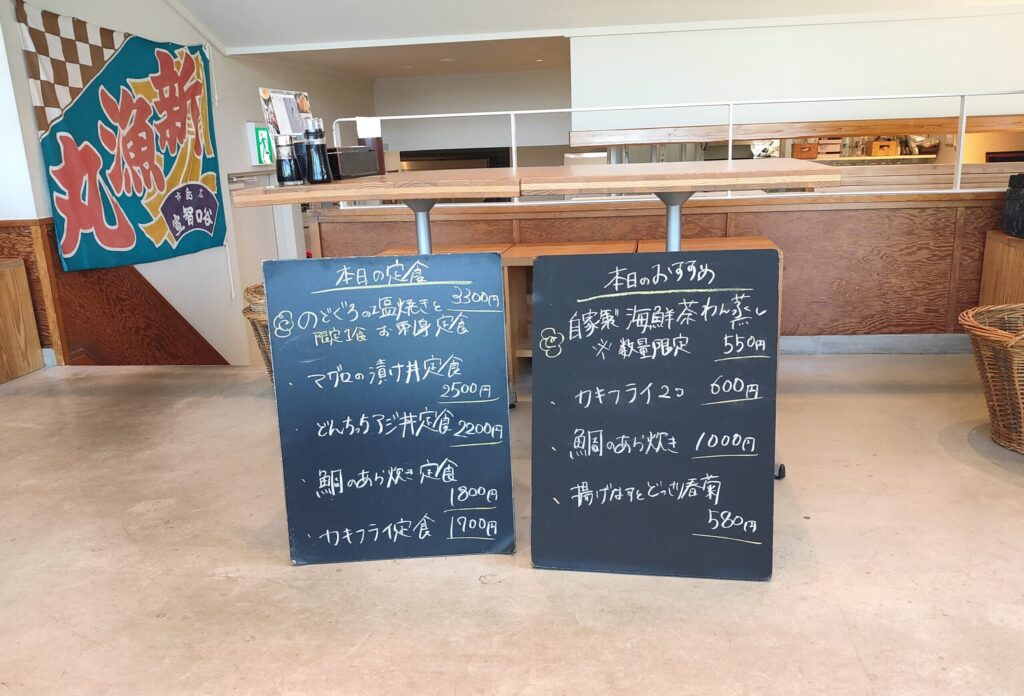 新漁丸
本日の定食
のどぐろの塩焼きと 3300円
限定1食 お刺身定食
・マグロの漬け丼定食
2500円
・どんちっちアジ丼定食 2200円
・鯛のあら炊き定食
1800円
・カキフライ定食 1700円
本日のおすすめ
自家製 海鮮茶わん蒸し
※数量限定 550円
・カキフライ2コ 600円
・鯛のあら炊き 1000円
・揚げなすとどっさり春菊
580円